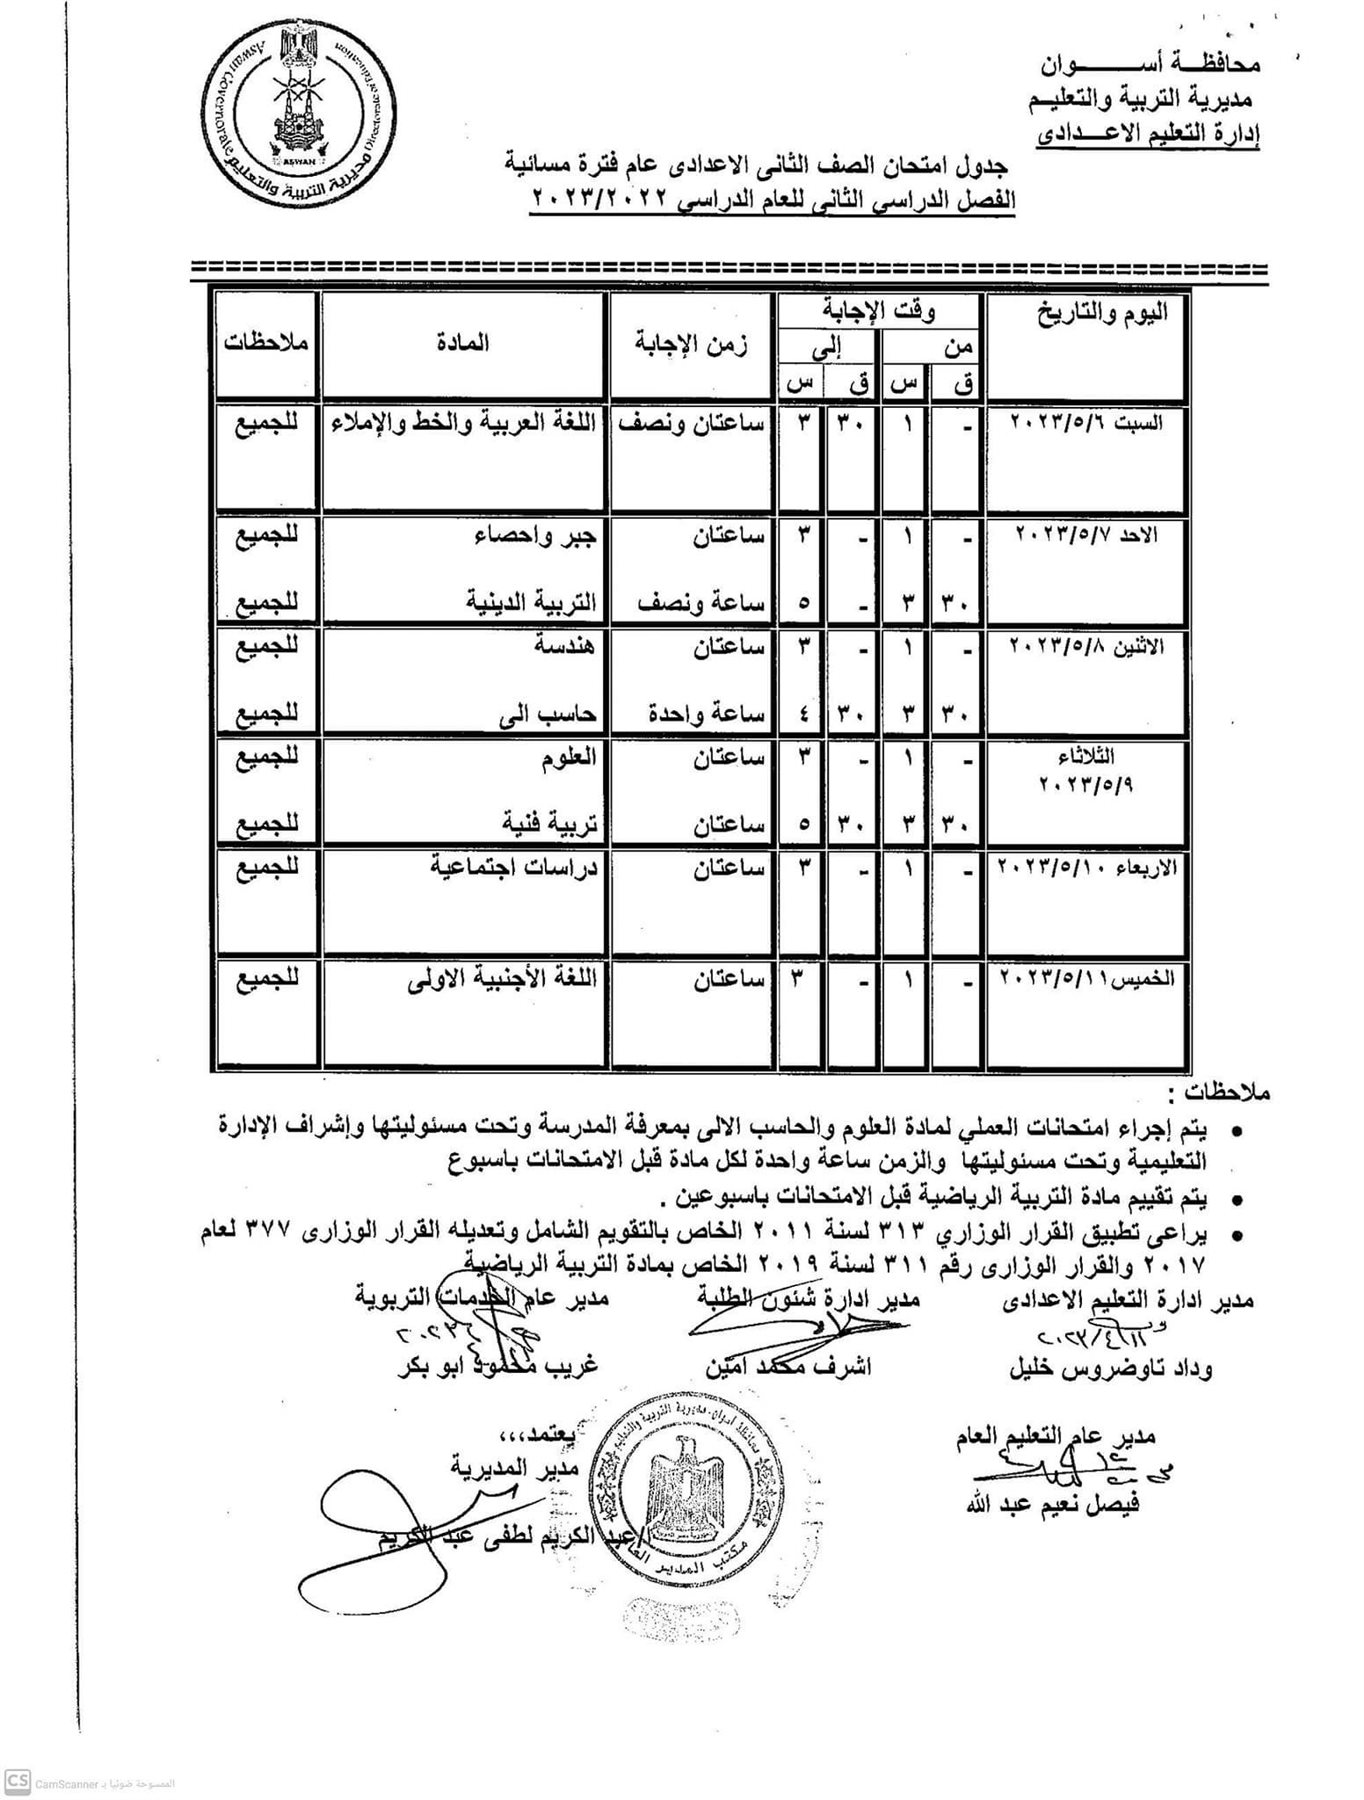 محافظة أســـــوان
مديرية التربية والتعليم
إدارة التعليم الاعـــدادى
Aswan Governorate
Directorate of Education
ASWAN
مديرية التربية والتعليم
جدول امتحان الصف الثانى الاعدادى عام فترة مسائية
الفصل الدراسي الثانى للعام الدراسي ٢٠٢٣/٢٠٢٢
اليوم والتاريخ وقت الإجابة زمن الإجابة المادة ملاحظات
من إلى
ق س ق س
السبت ٢٠٢٣/٥/٦ - ١ ٣٠ ٣ ساعتان ونصف اللغة العربية والخط والإملاء للجميع
الاحد ٢٠٢٣/٥/٧ - ١ - ٣ ساعتان جبر واحصاء للجميع
٣٠ ٣ - ٥ ساعة ونصف التربية الدينية للجميع
الاثنين ٢٠٢٣/٥/٨ - ١ - ٣ ساعتان هندسة للجميع
٣٠ ٣ ٣٠ ٤ ساعة واحدة حاسب الى للجميع
الثلاثاء - ١ - ٣ ساعتان العلوم للجميع
٢٠٢٣/٥/٩
٣٠ ٣ ٣٠ ٥ ساعتان تربية فنية للجميع
الاربعاء ٢٠٢٣/٥/١٠ - ١ - ٣ ساعتان دراسات اجتماعية للجميع
الخميس٢٠٢٣/٥/١١ - ١ - ٣ ساعتان اللغة الأجنبية الاولى للجميع
ملاحظات :
• يتم إجراء امتحانات العملي لمادة العلوم والحاسب الالى بمعرفة المدرسة وتحت مسئوليتها وإشراف الإدارة
التعليمية وتحت مسئوليتها والزمن ساعة واحدة لكل مادة قبل الامتحانات باسبوع
• يتم تقييم مادة التربية الرياضية قبل الامتحانات باسبوعين .
• يراعى تطبيق القرار الوزاري ٣١٣ لسنة ٢٠١١ الخاص بالتقويم الشامل وتعديله القرار الوزارى ٣٧٧ لعام
٢٠١٧ والقرار الوزارى رقم ٣١١ لسنة ٢٠١٩ الخاص بمادة التربية الرياضية
مدير ادارة التعليم الاعدادى مدير ادارة شئون الطلبة مدير عام الخدمات التربوية
٢٠٢٣/٤/١١
وداد تاوضروس خليل اشرف محمد امين غريب محمود ابو بكر
مدير عام التعليم العام
فيصل نعيم عبد الله
يعتمد،،،
مدير المديرية
ا/عبد الكريم لطفى عبد الكريم
محافظة اسوان - مديرية التربية والتعليم
مكتب المدير العام
CS CamScanner الممسوحة ضوئيا بـ